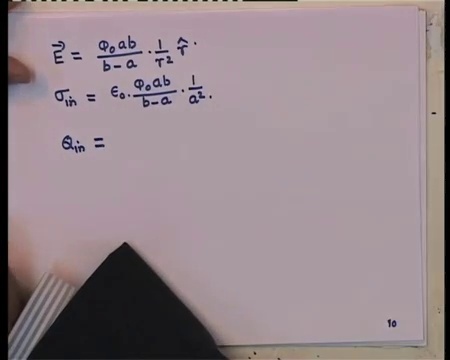 E⃗ = φ₀ab/(b-a) · 1/r² r̂.
σ_in = ε₀. φ₀ab/(b-a) · 1/a².
Q_in =
10